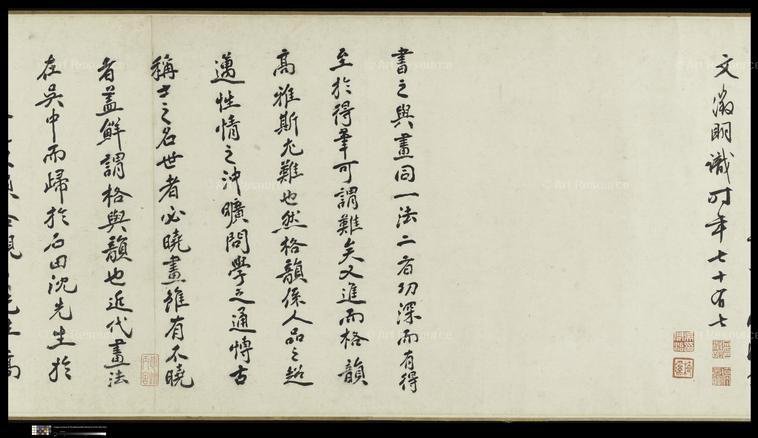 文徵明識時年七十有七
書之與畫同一法二者功深而有得
至於得筆可謂難矣又進而格韻
高雅斯尤難也然格韻係人品之超
邁性情之沖曠問學之通博古
稱士之名世者必曉畫雖有不曉
者蓋鮮謂格與韻也近代畫法
在吳中而歸於石田沈先生於
© Art Resource